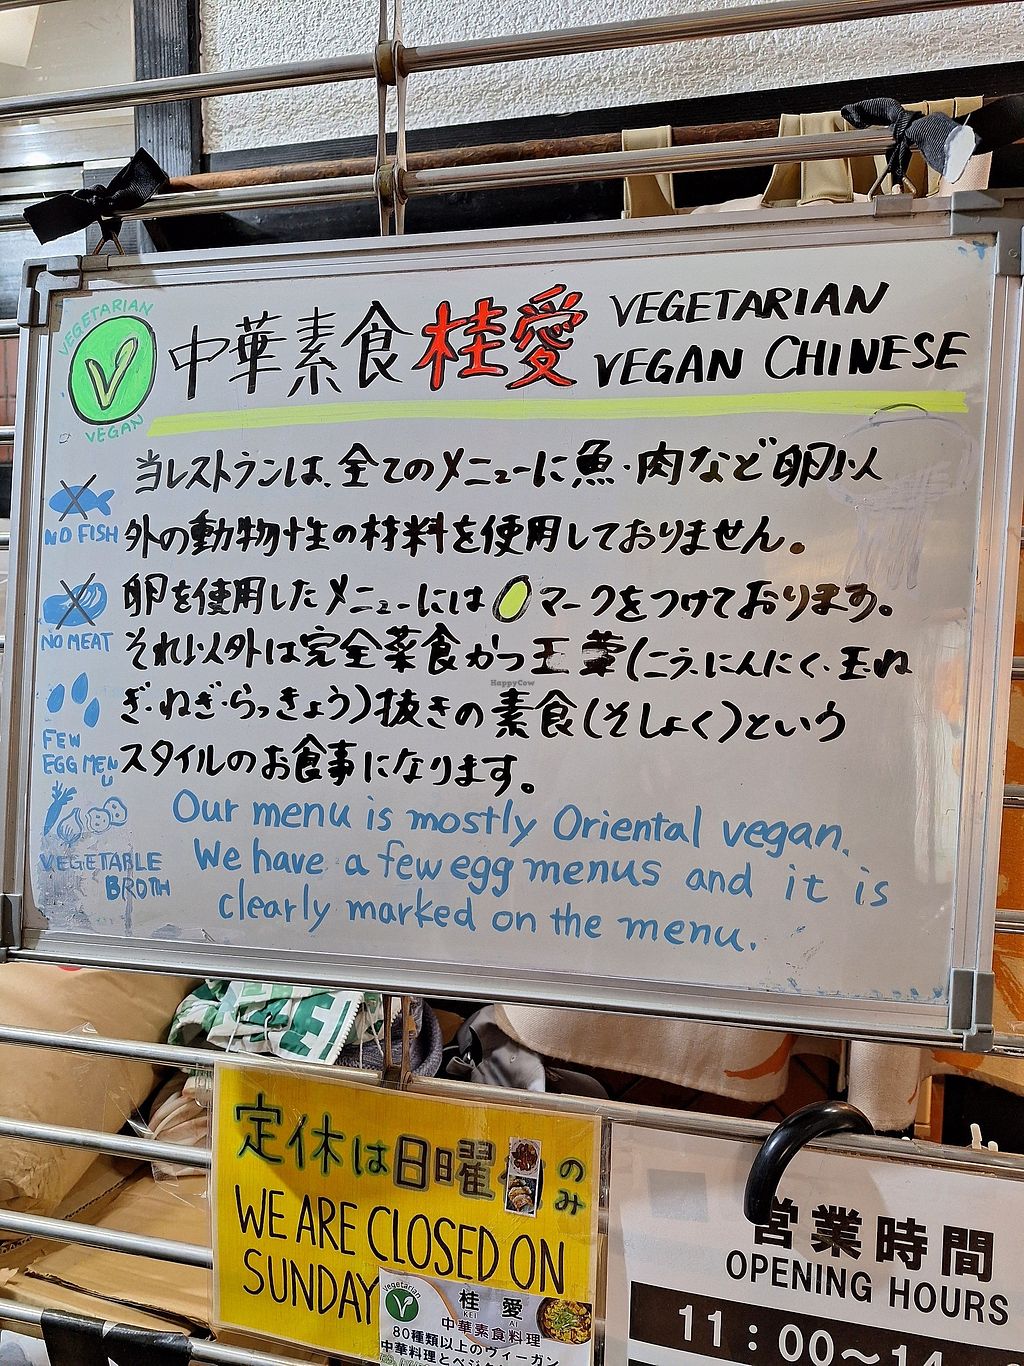 VEGETARIAN
VEGAN
中華素食桂愛 VEGETARIAN
VEGAN CHINESE
当レストランは、全てのメニューに魚・肉など卵以
外の動物性の材料を使用しておりません。
卵を使用したメニューには マークをつけております。
それ以外は完全菜食かつ五葷(ニラ・にんにく・玉ね
ぎ・ねぎ・らっきょう)抜きの素食(そしょく)という
スタイルのお食事になります。
NO FISH
NO MEAT
FEW
EGG MENU
VEGETABLE
BROTH
Our menu is mostly Oriental vegan.
We have a few egg menus and it is
clearly marked on the menu.
HappyCow
定休は日曜 のみ
WE ARE CLOSED ON
SUNDAY
Vegetarian
桂 愛
KEI AI
中華素食料理
80種類以上のヴィーガン
営業時間
OPENING HOURS
11:00~14